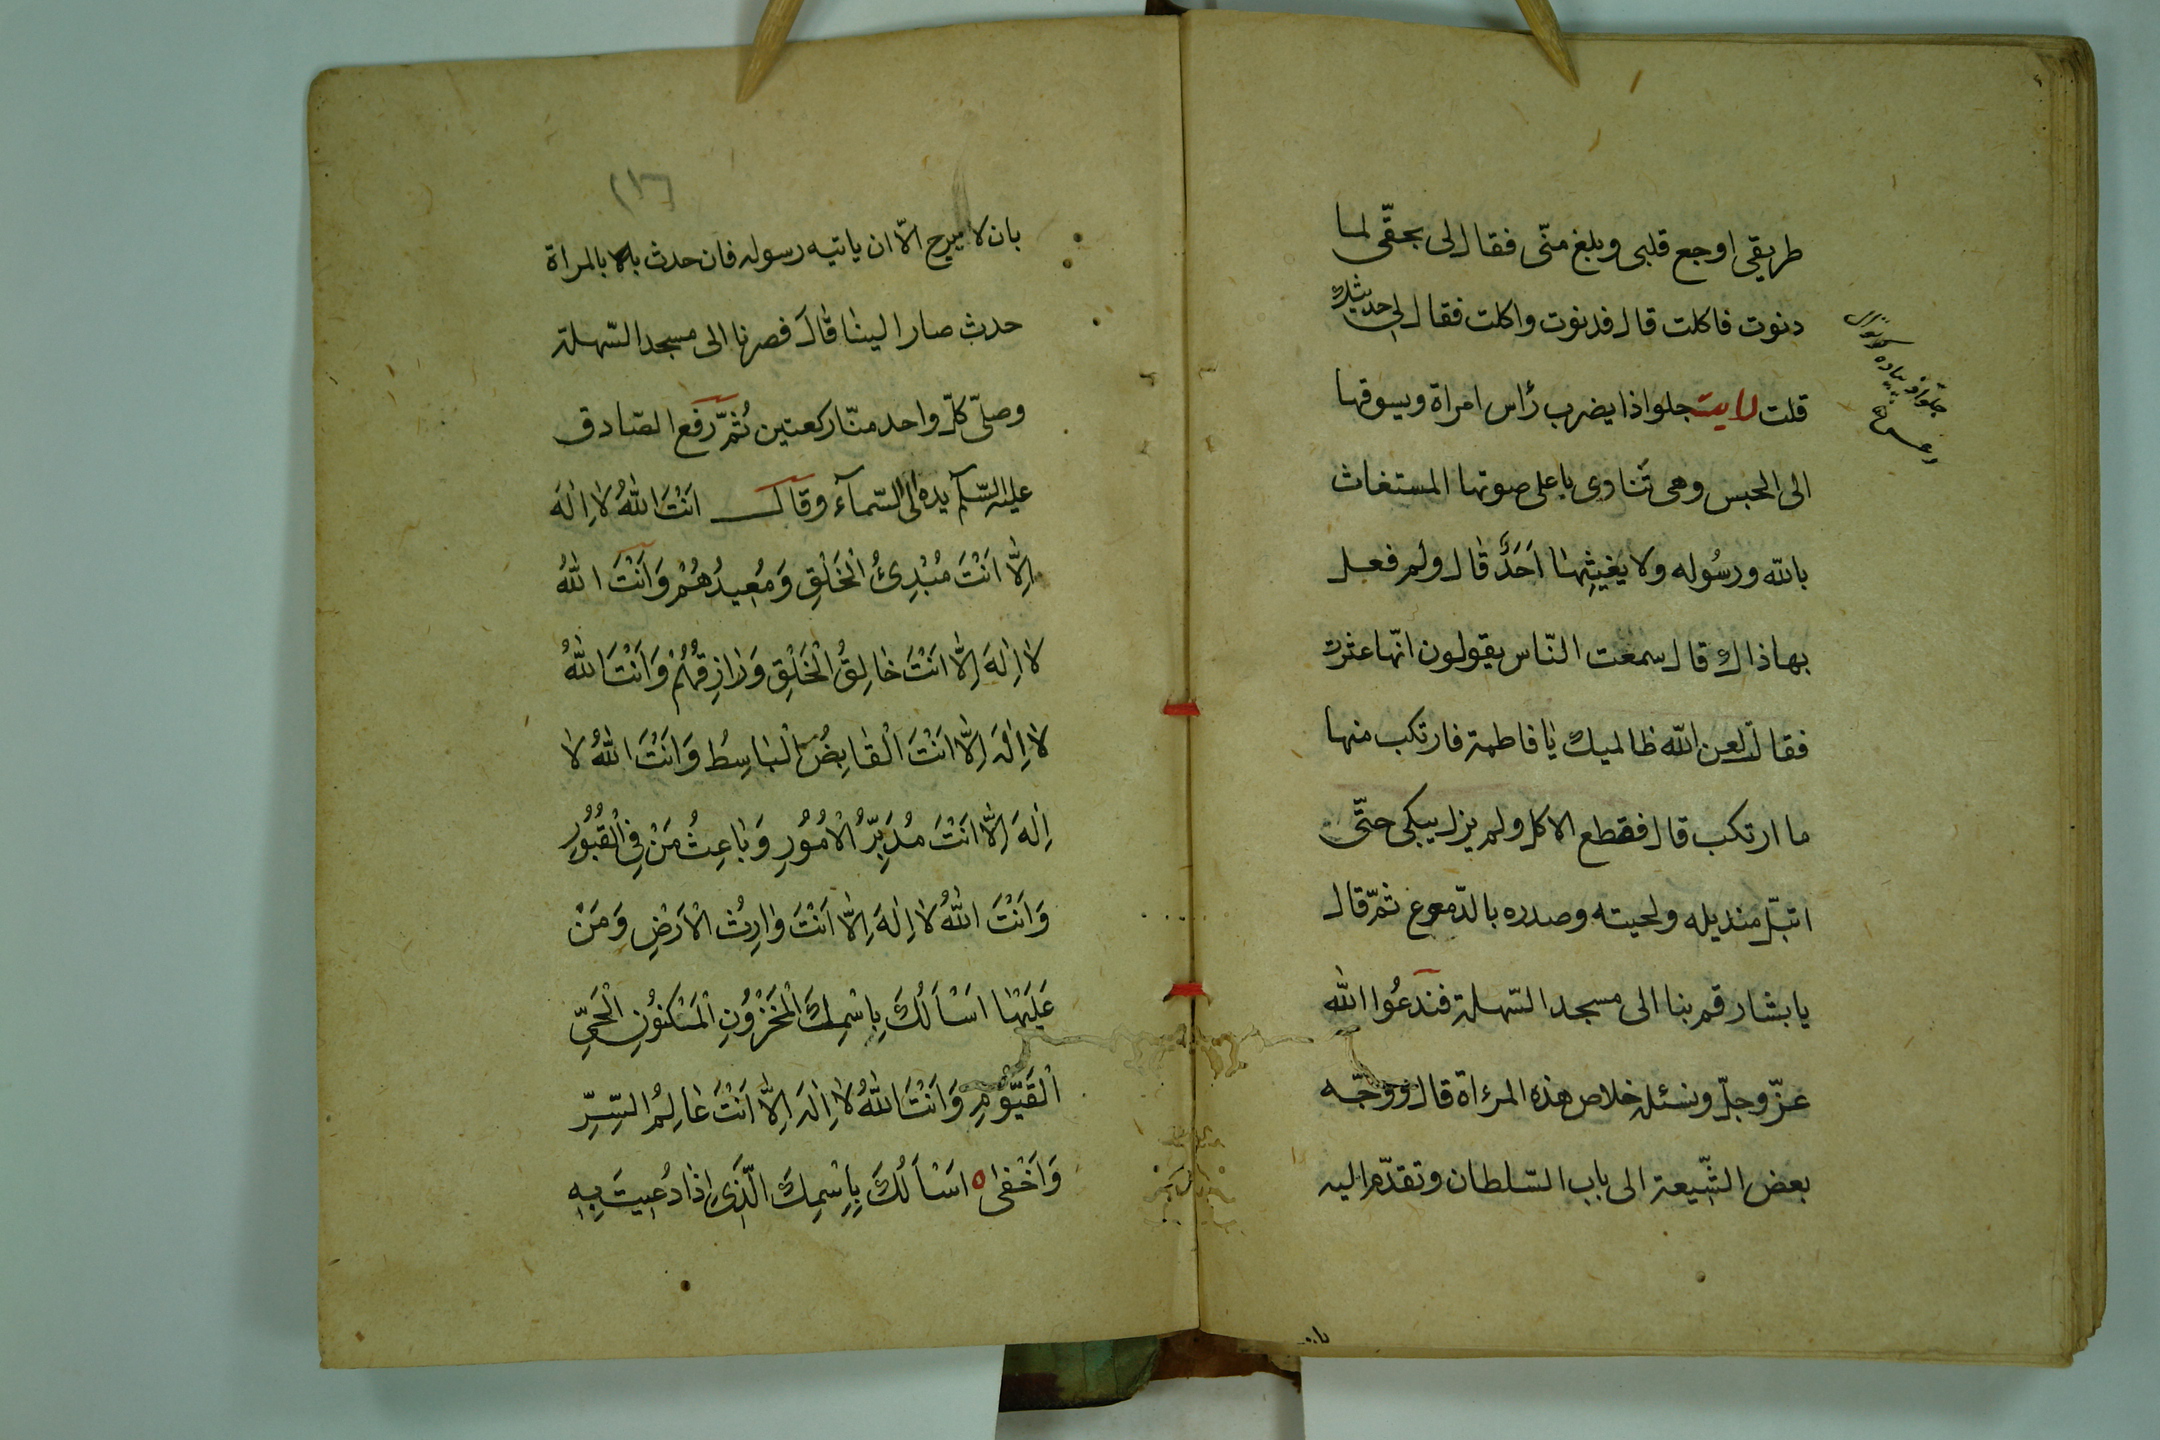 طريقى اوجع قلبى وبلغ منّى فقال لى بحقّى لما
دنوت فاكلت قال فدنوت واكلت فقال لى حديثك
قلت رايت جلواذا يضرب رأس امراة ويسوقها
الى الحبس وهى تنادى باعلى صوتها المستغاث
بالله ورسُوله ولا يغيثِها اَحَدٌ قال ولم فعل
بها ذاك قال سمعت النّاس يقولون انّها عثرت
فقالت لعن الله ظالميك يا فاطمة فارتكب منها
ما ارتكب قال فقطع الاكل ولم يزل يبكى حتّى
ابتلّ منديله ولحيته وصدره بالدّموع ثمّ قال
يا بشار قم بنا الى مسجد السّهلة فندعُوا الله
عزّ وجلّ ونسئله خلاص هذه المرءاة قال ووجّه
بعض الشّيعة الى باب السّلطان وتقدّم اليه
بان
بان لا يبرح الّا ان ياتيه رسوله فان حدث بالمراة
حدث صار الينا قالَ فصرنا الى مسجد السّهلة
وصلّى كلّ واحد منّا ركعتين ثُمّ رَفع الصّادق
عليه السّلم يده الى السّمآء وقال اَنْتَ اللّٰهُ لا اِلٰهَ
اِلّا اَنْتَ مُبْدِئُ الْخَلْقِ وَمُعِيدُهُمْ وَاَنْتَ اللّٰهُ
لا اِلٰهَ اِلّا اَنْتَ خالِقُ الْخَلْقِ وَرازِقُهُمْ وَاَنْتَ اللّٰهُ
لا اِلٰهَ اِلّا اَنْتَ الْقابِضُ الْباسِطُ وَاَنْتَ اللّٰهُ لا
اِلٰهَ اِلّا اَنْتَ مُدَبِّرُ الْاُمُورِ وَباعِثُ مَنْ فِى الْقُبُورِ
وَاَنْتَ اللّٰهُ لا اِلٰهَ اِلّا اَنْتَ وارِثُ الْاَرْضِ وَمَنْ
عَلَيْها اَسْاَلُكَ بِاِسْمِكَ الْمَخْزُونِ الْمَكْنُونِ الْحَىِّ
الْقَيُّومِ وَاَنْتَ اللّٰهُ لا اِلٰهَ اِلّا اَنْتَ عالِمُ السِّرِّ
وَاَخْفى اَسْاَلُكَ بِاِسْمِكَ الَّذى اِذا دُعيتَ بِهِ